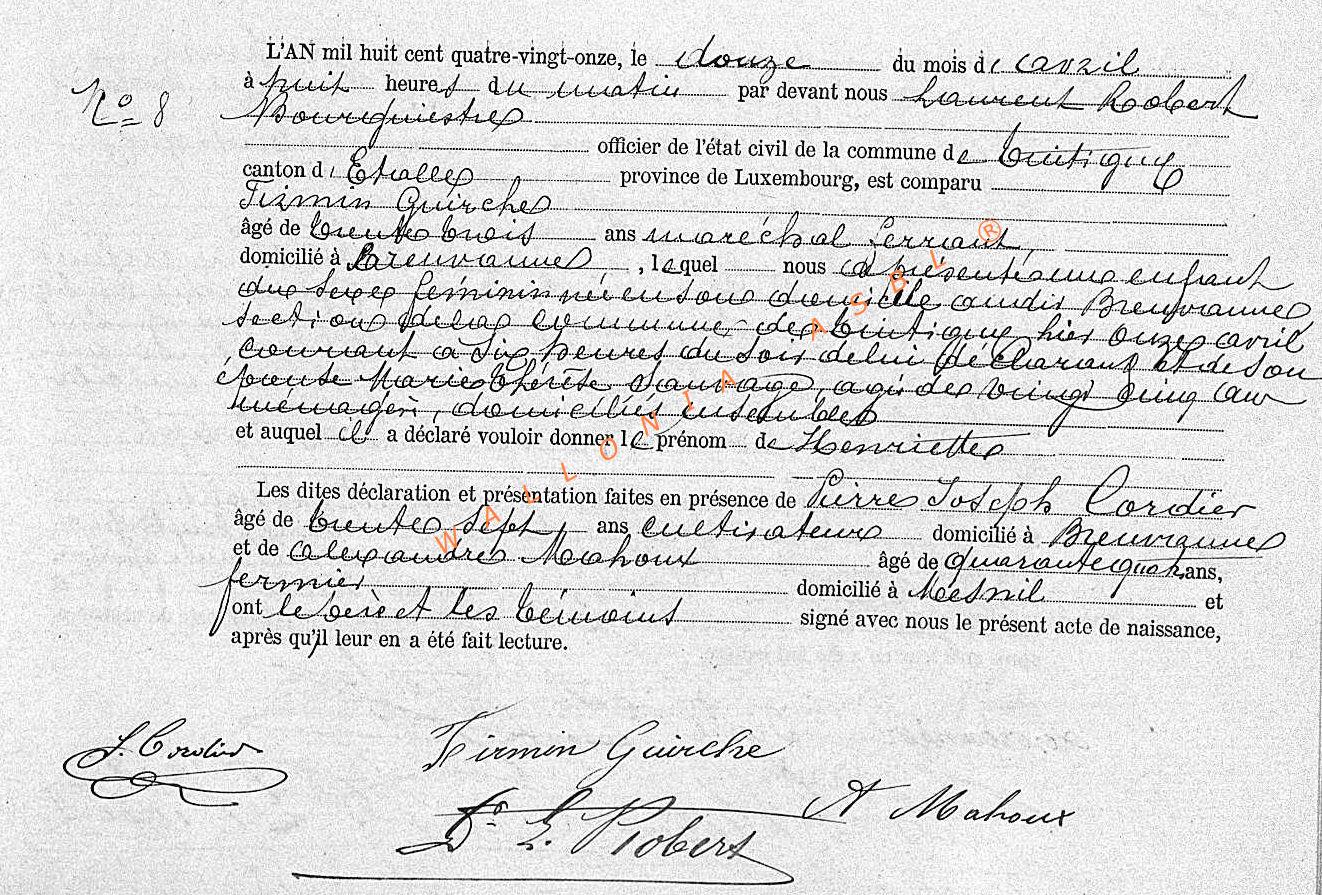 L'AN mil huit cent quatre-vingt-onze, le douze du mois de avril
N° 8
à huit heures du matin par devant nous Laurent Robert
Bourgmestre
officier de l'état civil de la commune de Tintigny
canton d'Etalle province de Luxembourg, est comparu
Firmin Guirche
âgé de trente trois ans maréchal ferrant,
domicilié à Breuvanne, lequel nous a présenté une enfant
du sexe féminin né en son domicile audit Breuvanne
section de la commune de Tintigny hier onze avril
courant à six heures du soir de lui déclarant et de son
épouse Marie Thérèse Sauvage, agée de vingt cinq ans
ménagère, domiciliés ensemble
et auquel il a déclaré vouloir donner le prénom de Henriette
Les dites déclaration et présentation faites en présence de Pierre Joseph Cordier
âgé de trente sept ans cultivateur domicilié à Breuvanne
et de Alexandre Mahoux âgé de quarante quatre ans,
fermier domicilié à Mesnil et
ont le père et les témoins signé avec nous le présent acte de naissance,
après qu'il leur en a été fait lecture.
J. Cordier
Firmin Guirche
A Mahoux
Dr L. Robert
WALLONIA ASBL ®